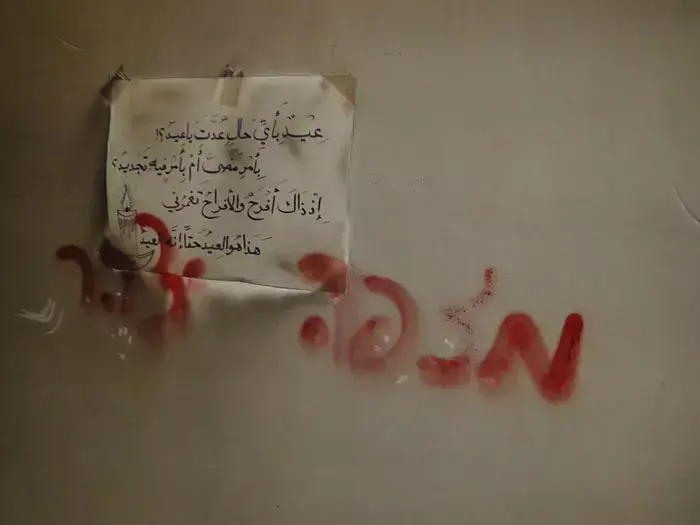 عِيْدٌ بِأَيِّ حَالٍ عُدْتَ يَا عِيدُ؟!
بِأَمْرٍ مَضَى أَمْ بِأَمْرٍ فِيهِ تَجْدِيدُ؟
إِذْ ذَاكَ أَفْرَحُ وَالأَفْرَاحُ تَغْمُرُنِي
هَذَا هُوَ العِيدُ حَقًّا إِنَّهُ العِيدُ